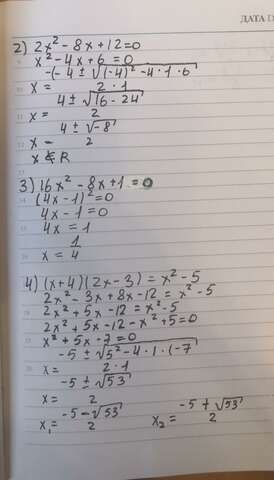 ДАТА
2) 2x² - 8x + 12 = 0
x² - 4x + 6 = 0
x = (-(-4 ± √((-4)² - 4 · 1 · 6)) / (2 · 1)
x = (4 ± √(16 - 24)) / 2
x = (4 ± √-8) / 2
x ∉ R
3) 16x² - 8x + 1 = 0
(4x - 1)² = 0
4x - 1 = 0
4x = 1
x = 1/4
4) (x+4)(2x-3) = x² - 5
2x² - 3x + 8x - 12 = x² - 5
2x² + 5x - 12 = x² - 5
2x² + 5x - 12 - x² + 5 = 0
x² + 5x - 7 = 0
x = (-5 ± √(5² - 4 · 1 · (-7)) / (2 · 1)
x = (-5 ± √53) / 2
x₁ = (-5 - √53) / 2 x₂ = (-5 + √53) / 2